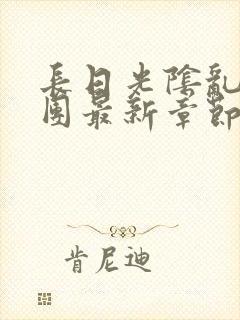 長日光陰亂
團最新章節
肯尼迪